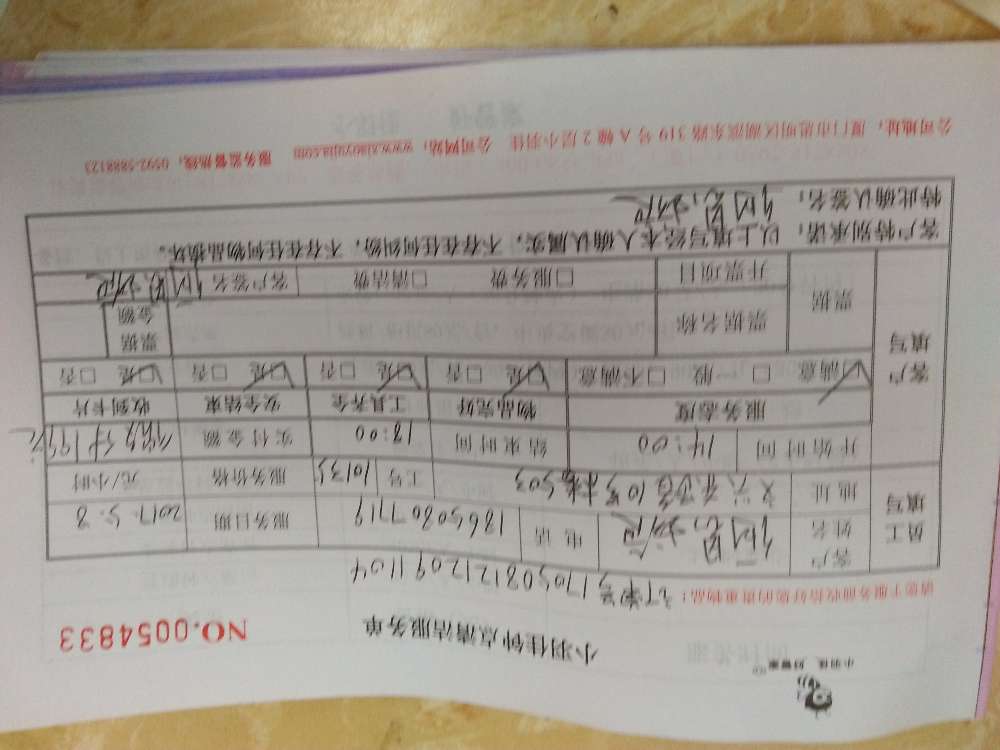 小羽佳 好管家
小羽佳钟点清洁服务单
NO.0054833
请您于服务前收拾好您的贵重物品！订单号1705081212091104
员工填写
客户姓名
电话 18650807719 服务日期 2017.5.8
地址 工号 10135 服务价格 元/小时
开始时间 14:00 结束时间 18:00 实付金额
客户填写
服务态度 物品完好 工具齐全 安全结束 收到卡片
☑满意 □一般 □不满意 ☑是 □否 ☑是 □否 ☑是 □否 ☑是 □否
票据 票据名称 票据金额
开票项目 □服务费 □清洁费 客户签名
客户特别承诺：以上填写经本人确认属实，不存在任何纠纷，不存在任何物品损坏。
特此确认签名：
公司地址：厦门市思明区湖滨东路319号A幢2层小羽佳 公司网站：www.xiaoyujia.com 服务监督热线：0592-5888123